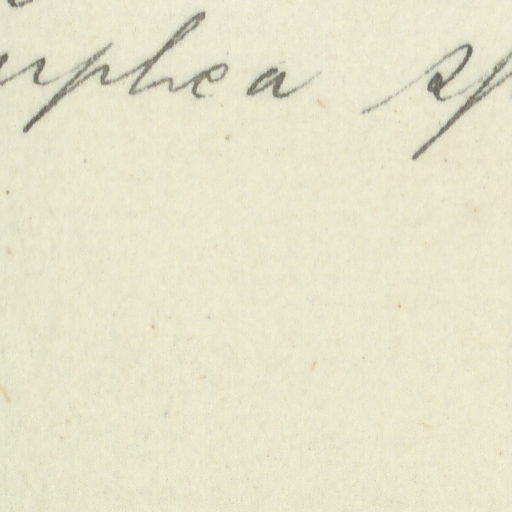 rphea sp